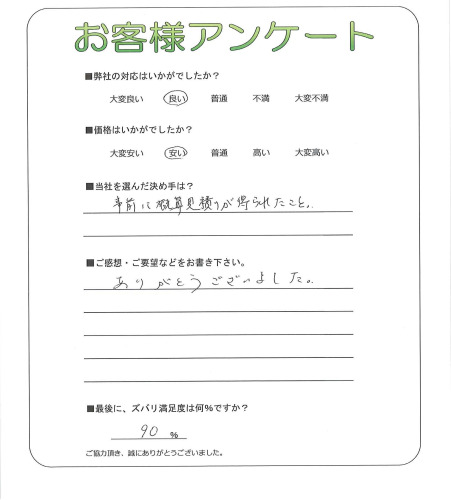 お客様アンケート
■弊社の対応はいかがでしたか？
大変良い 良い 普通 不満 大変不満
■価格はいかがでしたか？
大変安い 安い 普通 高い 大変高い
■当社を選んだ決め手は？
事前に概算見積りが得られたこと。
■ご感想・ご要望などをお書き下さい。
ありがとうございました。
■最後に、ズバリ満足度は何％ですか？
90 ％
ご協力頂き、誠にありがとうございました。